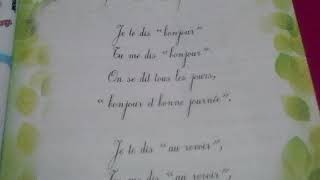 Je te dis "bonjour"
Tu me dis "bonjour"
On se dit tous les jours,
"bonjour et bonne journée".
Je te dis "au revoir",
Tu me dis "au revoir",